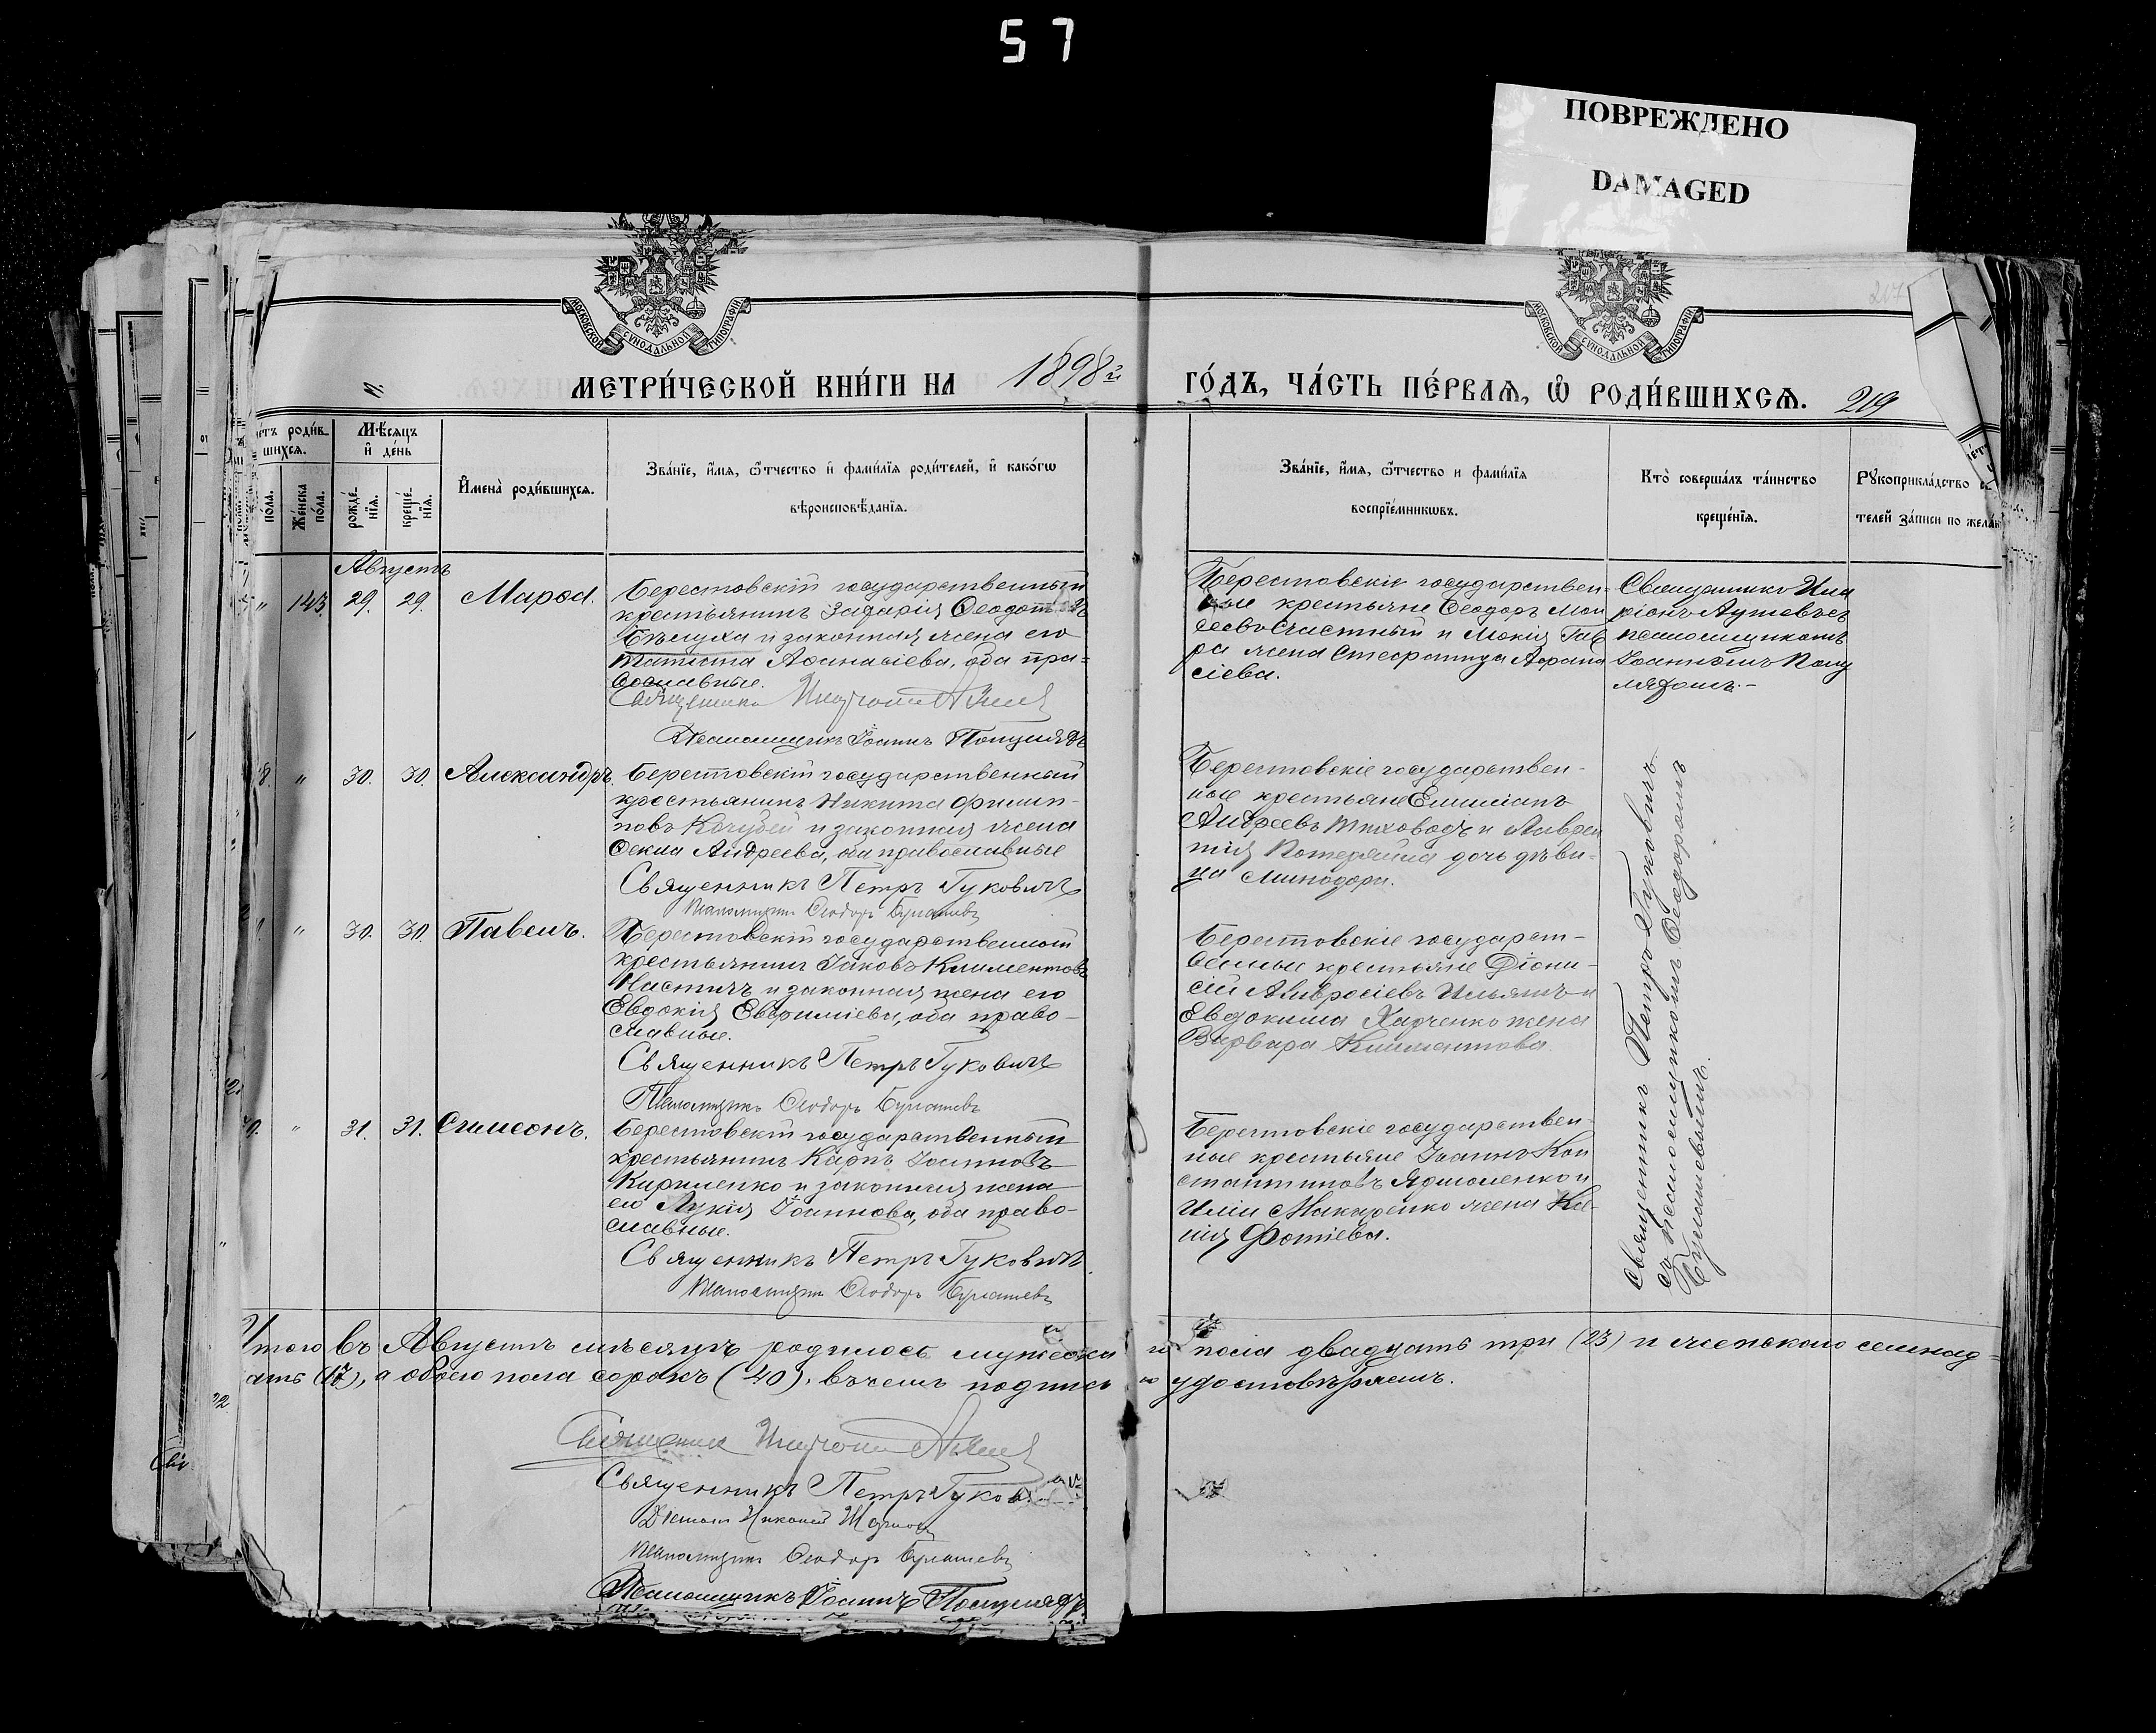 57
ПОВРЕЖДЕНО
DAMAGED
МОСКОВСКОЙ СѴНОДАЛЬНОЙ ТИПОГРАФІИ
МОСКОВСКОЙ СѴНОДАЛЬНОЙ ТИПОГРАФІИ
МЕТРИ́ЧЕСКОЙ КНИ́ГИ НА 1898й ГО́ДЪ, ЧА́СТЬ ПЕ́РВАѦ, Ѡ҆ РОДИ́ВШИХСѦ. 219
роди́в-
шихсѧ.
Мѣ́сѧцъ
и҆ де́нь
по́ла.
Же́нска
по́ла.
рожде́-
нїѧ.
креще́-
нїѧ.
И҆мена̀ роди́вшихсѧ.
Зва́нїе, и҆́мѧ, ѻ҆́тчество и҆ фами́лїѧ роди́телей, и҆ како́гѡ
вѣроисповѣ́данїѧ.
Зва́нїе, и҆́мѧ, ѻ҆́тчество и фами́лїѧ
воспрїе́мникѡвъ.
Кто̀ соверша́лъ та́инство
креще́нїѧ.
Рꙋкоприкла́дство
телей за́писи по жела́
Августъ
" 143 29. 29. Марѳа.
Берестовскій государственный
крестьянинъ Захарія Ѳеодотовъ
Бѣлуха и законная жена его
Татіана Аѳанасіева, оба пра=
вославные.
Священникъ
Псаломщикъ Іоаннъ Полулядъ
Берестовскіе государствен-
ные крестьяне Ѳеодоръ Мои
сеевъ Счастный и Мокія Гав
ра жена Стефанида Аѳана
сіева.
Священникъ Ила
ріонъ съ
псаломщикомъ
Іоанномъ Полу
лядомъ.-
8. " 30. 30. Александръ.
Берестовскій государственный
крестьянинъ Никита Филип-
повъ Кочубей и законная жена
Ѳекла Андреева, оба православные
Священникъ Петръ Гуковичъ
Псаломщикъ Ѳеодоръ Булашевъ
Берестовскіе государствен-
ные крестьяне Емиліанъ
Андреевъ Тиховодъ и Лаврен
тія Потеряйла дочь дѣви-
ца Минодора.
" 30. 30. Павелъ.
Берестовскій государственный
крестьянинъ Іаковъ Климентовъ
Настичъ и законная жена его
Евдокія Евфиміева, оба право-
славные.
Священникъ Петръ Гуковичъ
Псаломщикъ Ѳеодоръ Булашевъ
Берестовскіе государст-
венные крестьяне Діони-
сій Амвросіевъ Ильяшъ и
Евдокима Харченко жена
Варвара Климентова
" 31. 31. Симеонъ.
Берестовскій государственный
крестьянинъ Карпъ Іоанновъ
Кириленко и законная жена
его Лукія Іоаннова, оба право-
славные.
Священникъ Петръ Гуковичъ
Псаломщикъ Ѳеодоръ Булашевъ
Берестовскіе государствен-
ные крестьяне Іоаннъ Кон
стантиновъ Ярмоленко и
Иліи Макаренко жена
Фотіева.
Священникъ Петръ Гуковичъ
съ псаломщикомъ Ѳеодоромъ
Булашевымъ.
Итого въ Августѣ мѣсяцѣ родилось мужеска го пола двадцать три (23) и женскаго семнад-
ать (17), а обоего пола сорокъ (40). въ чемъ подписью удостовѣряемъ.
Священникъ
Священникъ Петръ Гуковичъ
Псаломщикъ Ѳеодоръ Булашевъ
Псаломщикъ Іоаннъ Полулядъ